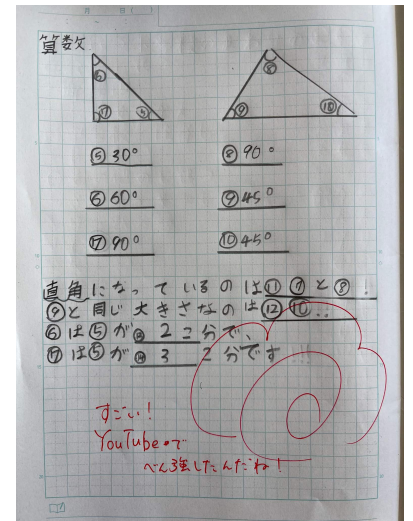 月 日( )
算数
⑥ ⑦ ⑤
⑧ ⑨ ⑩
⑤ 30° ⑧ 90°
⑥ 60° ⑨ 45°
⑦ 90° ⑩ 45°
直角になっているのは⑪ ⑦と⑧!
⑨と同じ大きさなのは⑫ ⑩!!
⑥は⑤が⑬ 2こ分で、
⑦は⑤が⑭ 3こ分です…
すごい!
YouTubeで
べん強したんだね!